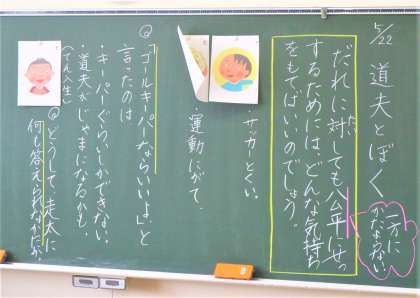 5/22 道夫とぼく
一方に
かたよらない
だれに対しても公平にせっ
するためにはどんな気持ち
をもてばいいのでしょう。
・サッカーとくい。
・運動にがて。
Q「ゴールキーパーならいいよ」と
言ったのは
・キーパーぐらいしかできない。
・道夫がじゃまになるかも。
(てん入生)
Q どうして走太に
何も答えられなかったか